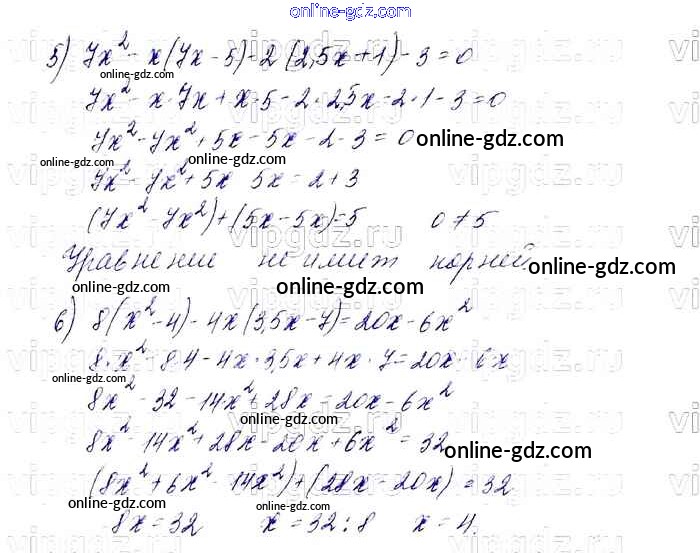 online-gdz.com
5) 7x² - x(7x - 5) - 2(2,5x + 1) - 3 = 0
online-gdz.com
7x² - x·7x + x·5 - 2·2,5x - 2·1 - 3 = 0
7x² - 7x² + 5x - 5x - 2 - 3 = 0 online-gdz.com
online-gdz.com online-gdz.com
7x² - 7x² + 5x 5x = 2 + 3
(7x² - 7x²) + (5x - 5x) = 5 0 ≠ 5
online-gdz.com
Уравнение не имеет корней. online-gdz.com
6) 8(x² - 4) - 4x(3,5x - 7) = 20x - 6x²
online-gdz.com
8·x² - 8·4 - 4x·3,5x + 4x·7 = 20x - 6x
online-gdz.com
8x² - 32 - 14x² + 28x = 20x - 6x²
online-gdz.com
8x² - 14x² + 28x - 20x + 6x² = 32 online-gdz.com
(8x² + 6x² - 14x²) + (28x - 20x) = 32
online-gdz.com online-gdz.com
8x = 32 x = 32 : 8 x = 4.
vipgdz.ru